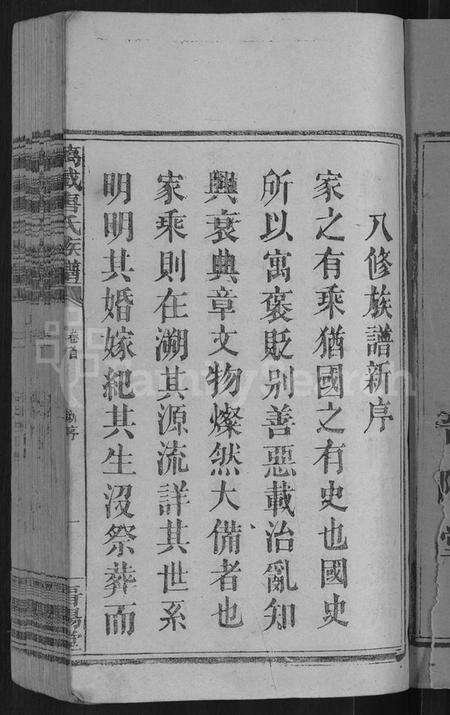 八修族譜新序
家之有乘猶國之有史也國史
所以寓褒貶别善惡載治亂知
興衰典章文物燦然大備者也
家乘則在溯其源流詳其世系
明明其婚嫁紀其生沒祭葬而
萬載
氏族譜
卷首
新序
一
堂